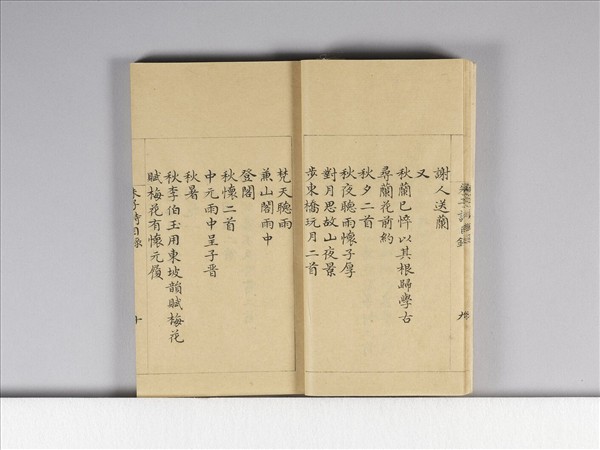 謝人送蘭
又
秋蘭已悴以其根歸學古
尋蘭花前約
秋夕二首
秋夜聽雨懷子厚
對月思故山夜景
步東橋玩月二首
梵天聽雨
兼山閣雨中
登閣
秋懷二首
中元雨中呈子晋
秋暑
秋李伯玉用東坡韻賦梅花
賦梅花有懷元履
朱子詩目錄
十